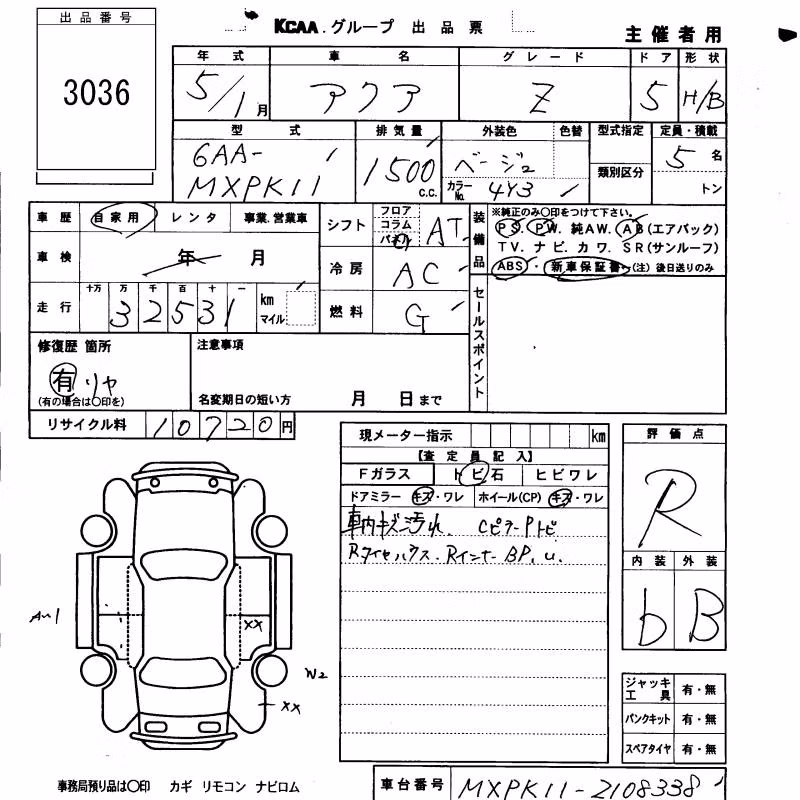 出品番号
3036
KCAA.グループ 出品票
主催者用
年式 車名 グレード ドア 形状
5/1月 アクア Z 5 H/B
型式 排気量 外装色 色替 型式指定 定員・積載
6AA-
MXPK11
1500 c.c.
ベージュ
カラーNo. 4Y3
類別区分
5名
トン
車歴 自家用 レンタ 事業.営業車
車検 年 月
走行 十万 万 千 百 十 一
32531 km マイル
シフト フロア コラム パネル AT
冷房 AC
燃料 G
装備品
※純正のみ〇印をつけて下さい。
PS. PW. 純AW. AB(エアバック)
TV. ナビ. カワ. SR(サンルーフ)
ABS・新車保証書(注)後日送りのみ
セールスポイント
修復歴 箇所
有 リヤ
(有の場合は〇印を)
注意事項
名変期日の短い方 月 日まで
リサイクル料 10720円
現メーター指示 km
【査定員記入】
Fガラス トビ石 ヒビワレ
ドアミラー キズ・ワレ ホイール(CP) キズ・ワレ
車内キズ汚れ. CピラーPトビ
Rタイヤハウス. Rインナー BP. u.
評価点
R
内装 外装
b B
A-1
XX
W2
XX
ジャッキ工具 有・無
パンクキット 有・無
スペアタイヤ 有・無
事務局預り品は〇印 カギ リモコン ナビロム
車台番号 MXPK11-2108338